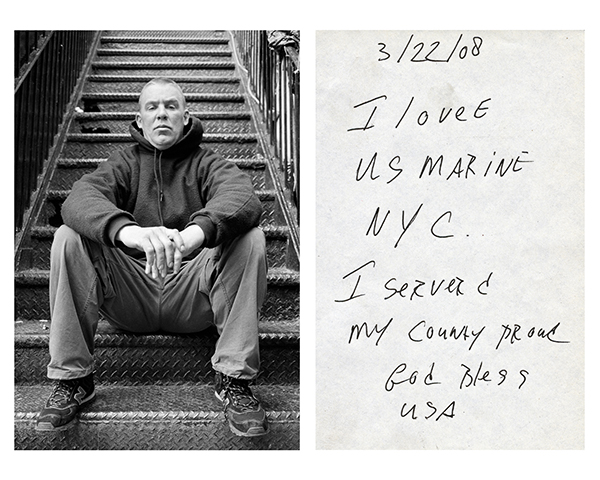 3/22/08
I loveE
US MARiNE
NYC..
I serverd
MY COUNtY PROUd
God Bless
USA